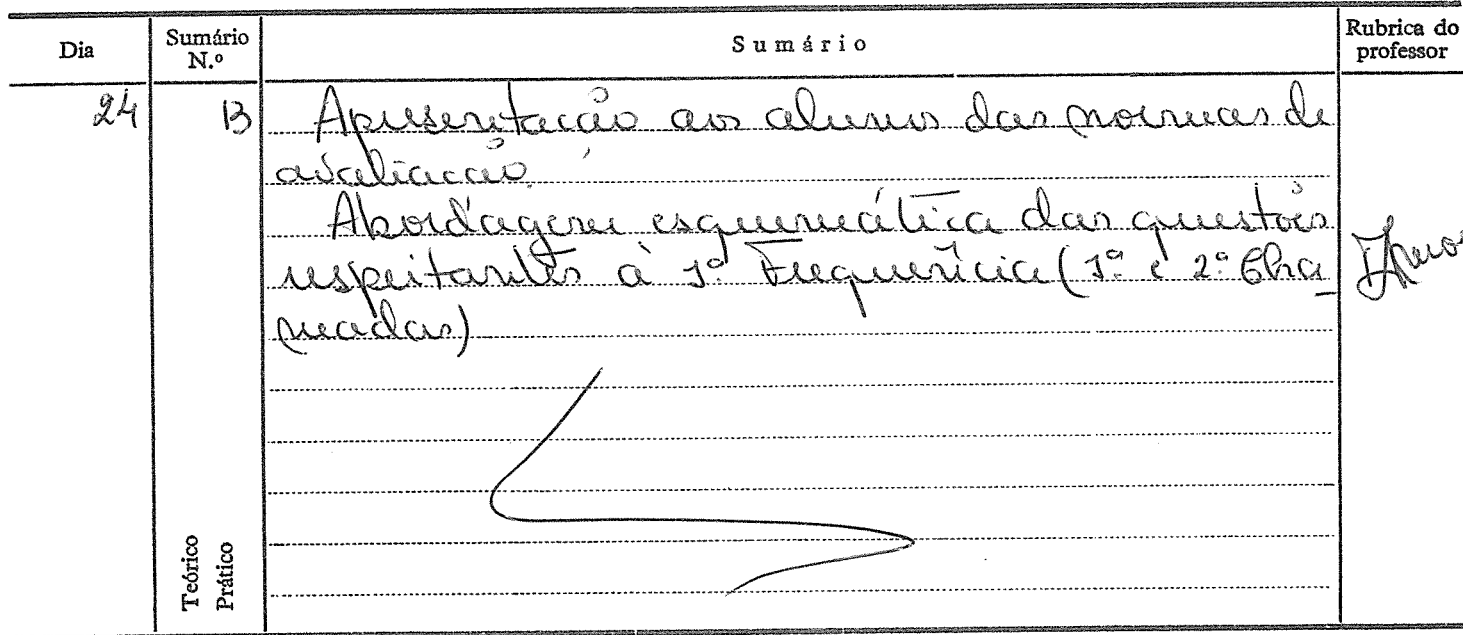 Dia
Sumário N.º
Sumário
Rubrica do professor
24
13
Apresentação aos alunos das normas de
avaliação.
Abordagem esquemática das questões
respeitantes à 1ª Frequência (1ª e 2ª Cha
madas)
Teórico
Prático